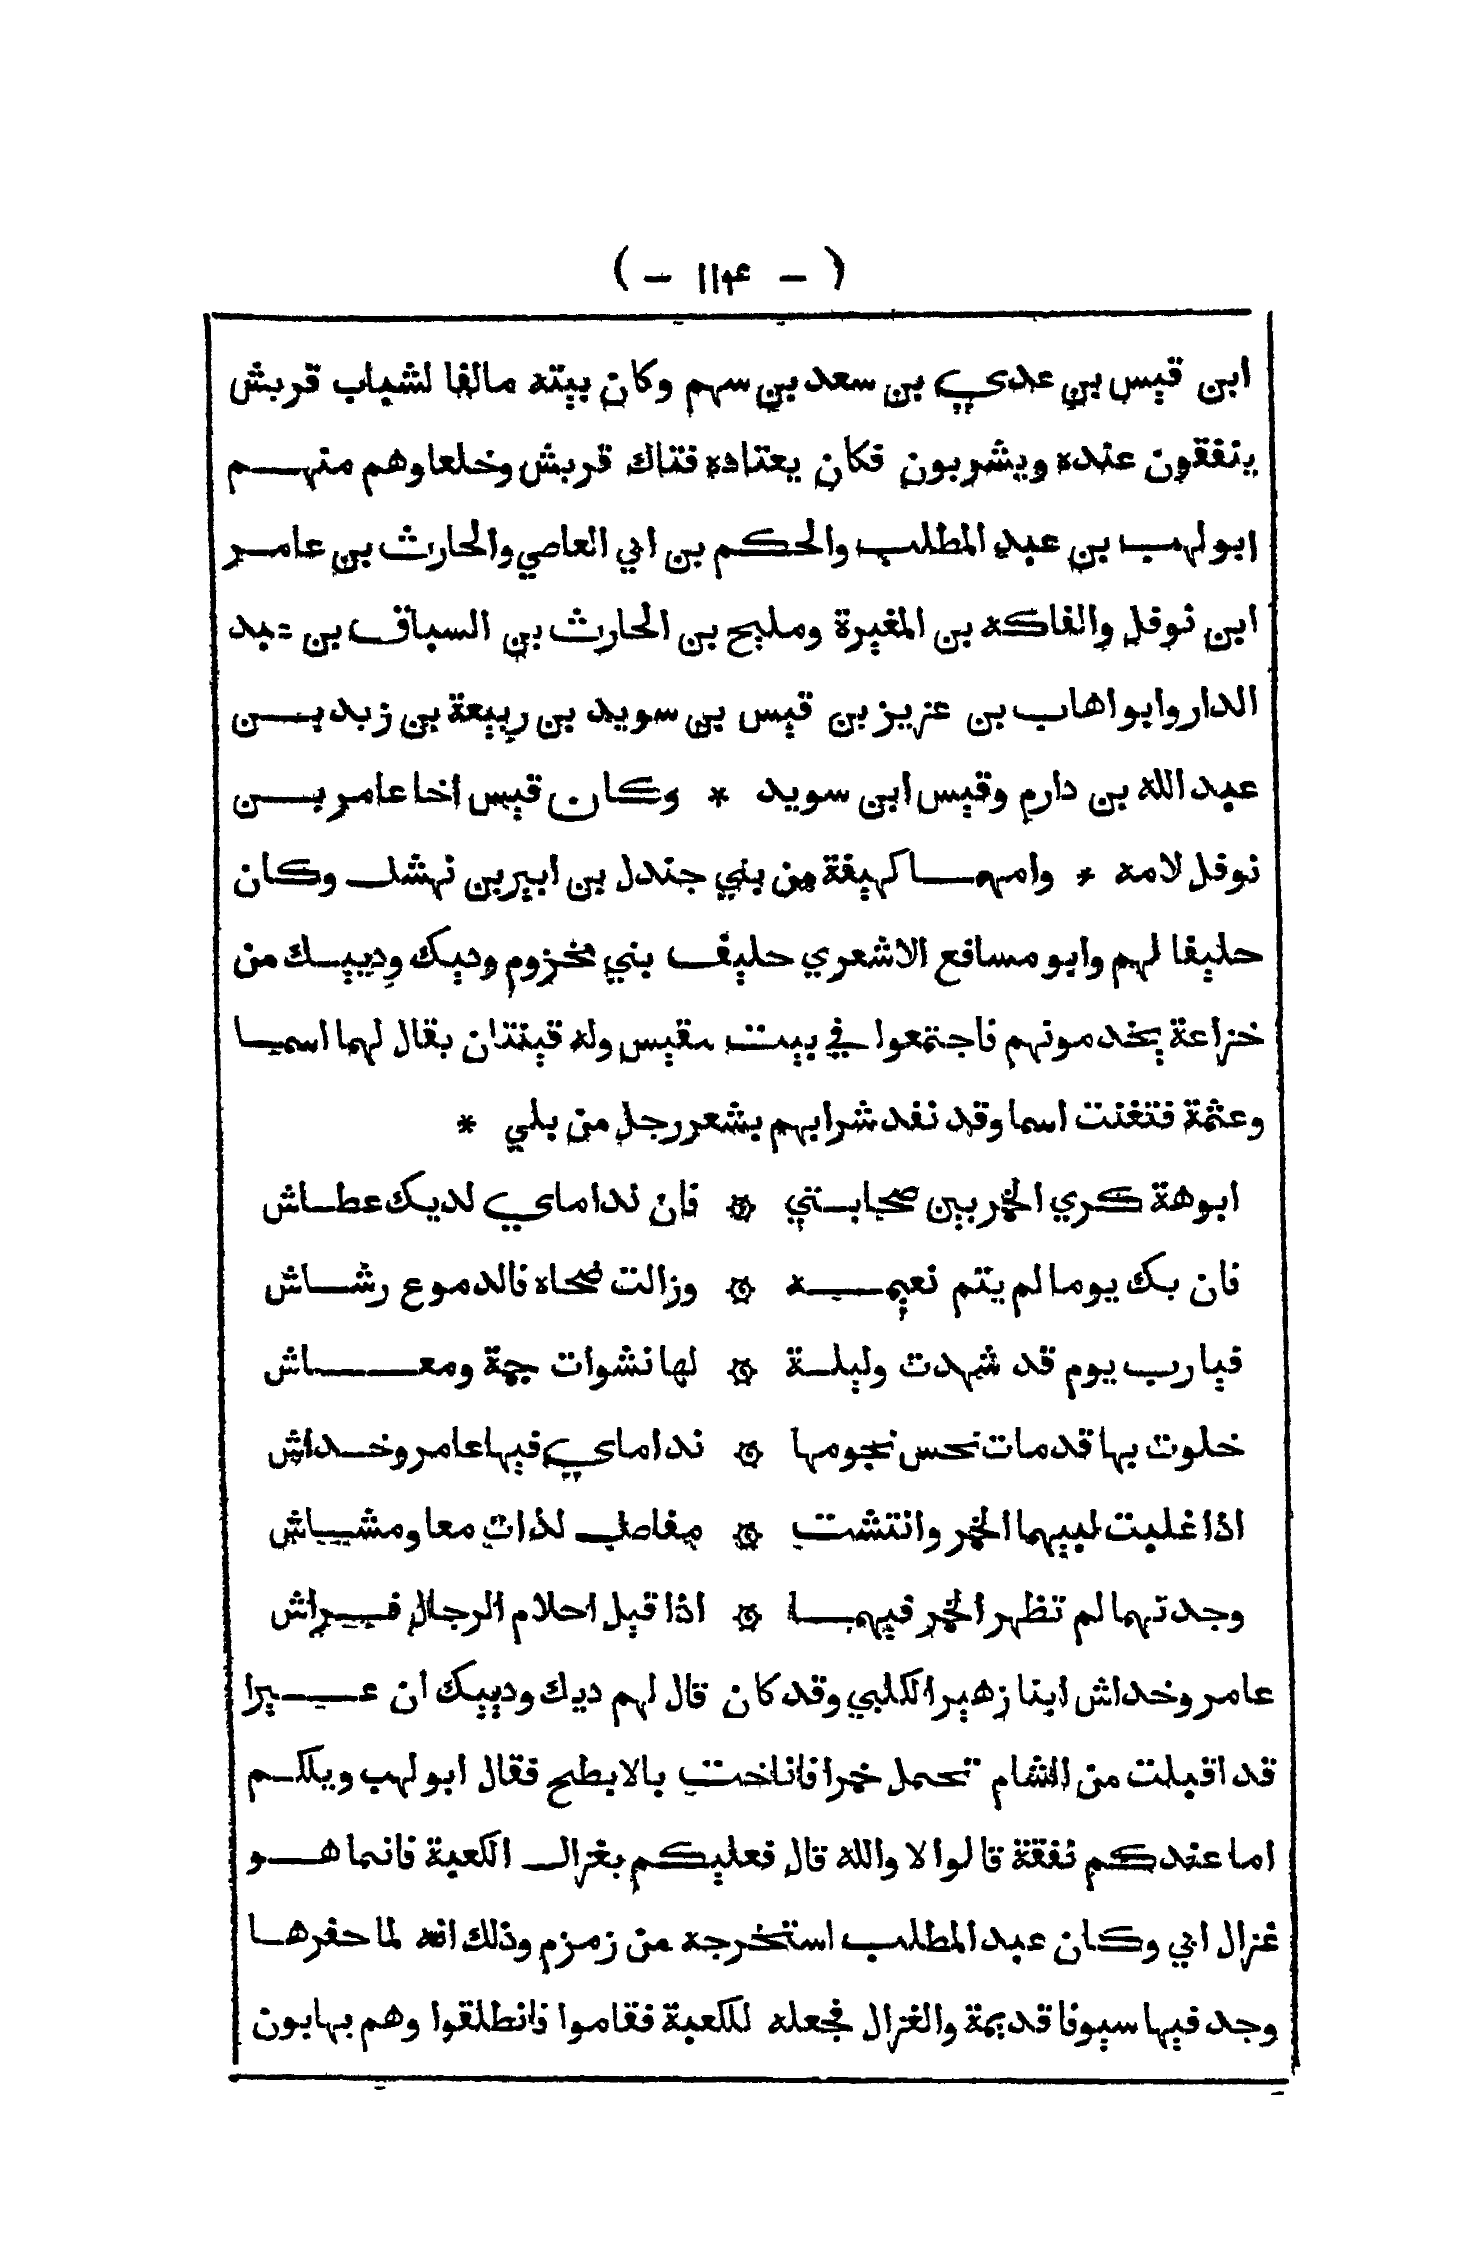 ( - ١١٤ - )
ابن قيس بن عدي بن سعد بن سهم وكان بيته مالفا لشباب قريش
ينفقون عنده ويشربون فكان يعتاده فتاك قريش وخلعاوهم منهم
ابو لهب بن عبد المطلب والحكم بن ابي العاصي والحارث بن عامر
ابن نوفل والفاكه بن المغيرة ومليح بن الحارث بن السباق بن عبد
الدار وابو اهاب بن عزيز بن قيس بن سويد بن ربيعة بن زيد بن
عبد الله بن دارم وقيس ابن سويد * وكان قيس اخا عامر بن
نوفل لامه * وامهما كهيفة من بني جندل بن ابير بن نهشل وكان
حليفا لهم وابو مسافع الاشعري حليف بني مخزوم وديك ودييك من
خزاعة يخدمونهم فاجتمعوا في بيت مقيس وله قينتان يقال لهما اسما
وعثمة فتغنت اسما وقد نفد شرابهم بشعر رجل من بلي *
ابوهة كري الخمر بين صحابتي ۞ فان نداماي لديك عطاش
فان يك يوما لم يتم نعيمه ۞ وزالت ضحاه فالدموع رشاش
فيا رب يوم قد شهدت وليلة ۞ لها نشوات جمة ومعاش
خلوت بها قد مات نحس نجومها ۞ نداماي فيها عامر وخداش
اذا غلبت لبيهما الخمر وانتشت ۞ مفاصل لذات معا ومشاش
وجدتهما لم تظهر الخمر فيهما ۞ اذا قيل احلام الرجال فراش
عامر وخداش ابنا زهير الكلبي وقد كان قال لهم ديك ودييك ان عيرا
قد اقبلت من الشام تحمل خمرا فاناخت بالابطح فقال ابو لهب ويلكم
اما عندكم نفقة قالوا لا والله قال فعليكم بغزال الكعبة فانما هو
غزال ابي وكان عبد المطلب استخرجه من زمزم وذلك انه لما حفرها
وجد فيها سيوفا قديمة والغزال فجعله للكعبة فقاموا فانطلقوا وهم يهابون